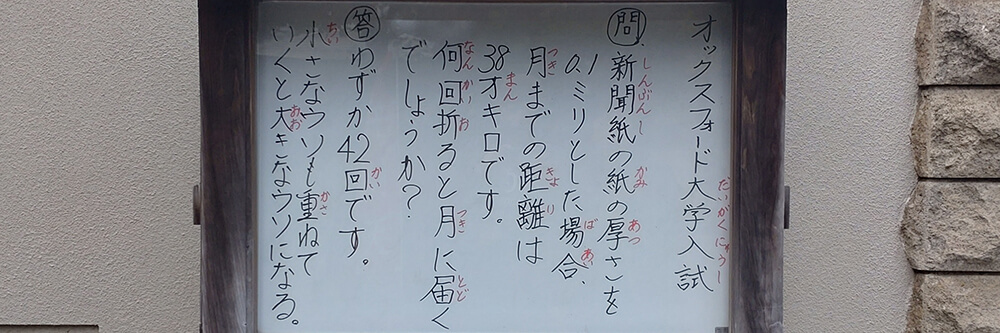 オックスフォード大学入試
問.新聞紙の紙の厚さを
0.1ミリとした場合、
月までの距離は
38万キロです。
何回折ると月に届く
でしょうか?
答わずか42回です。
小さなウソも重ねて
いくと大きなウソになる。